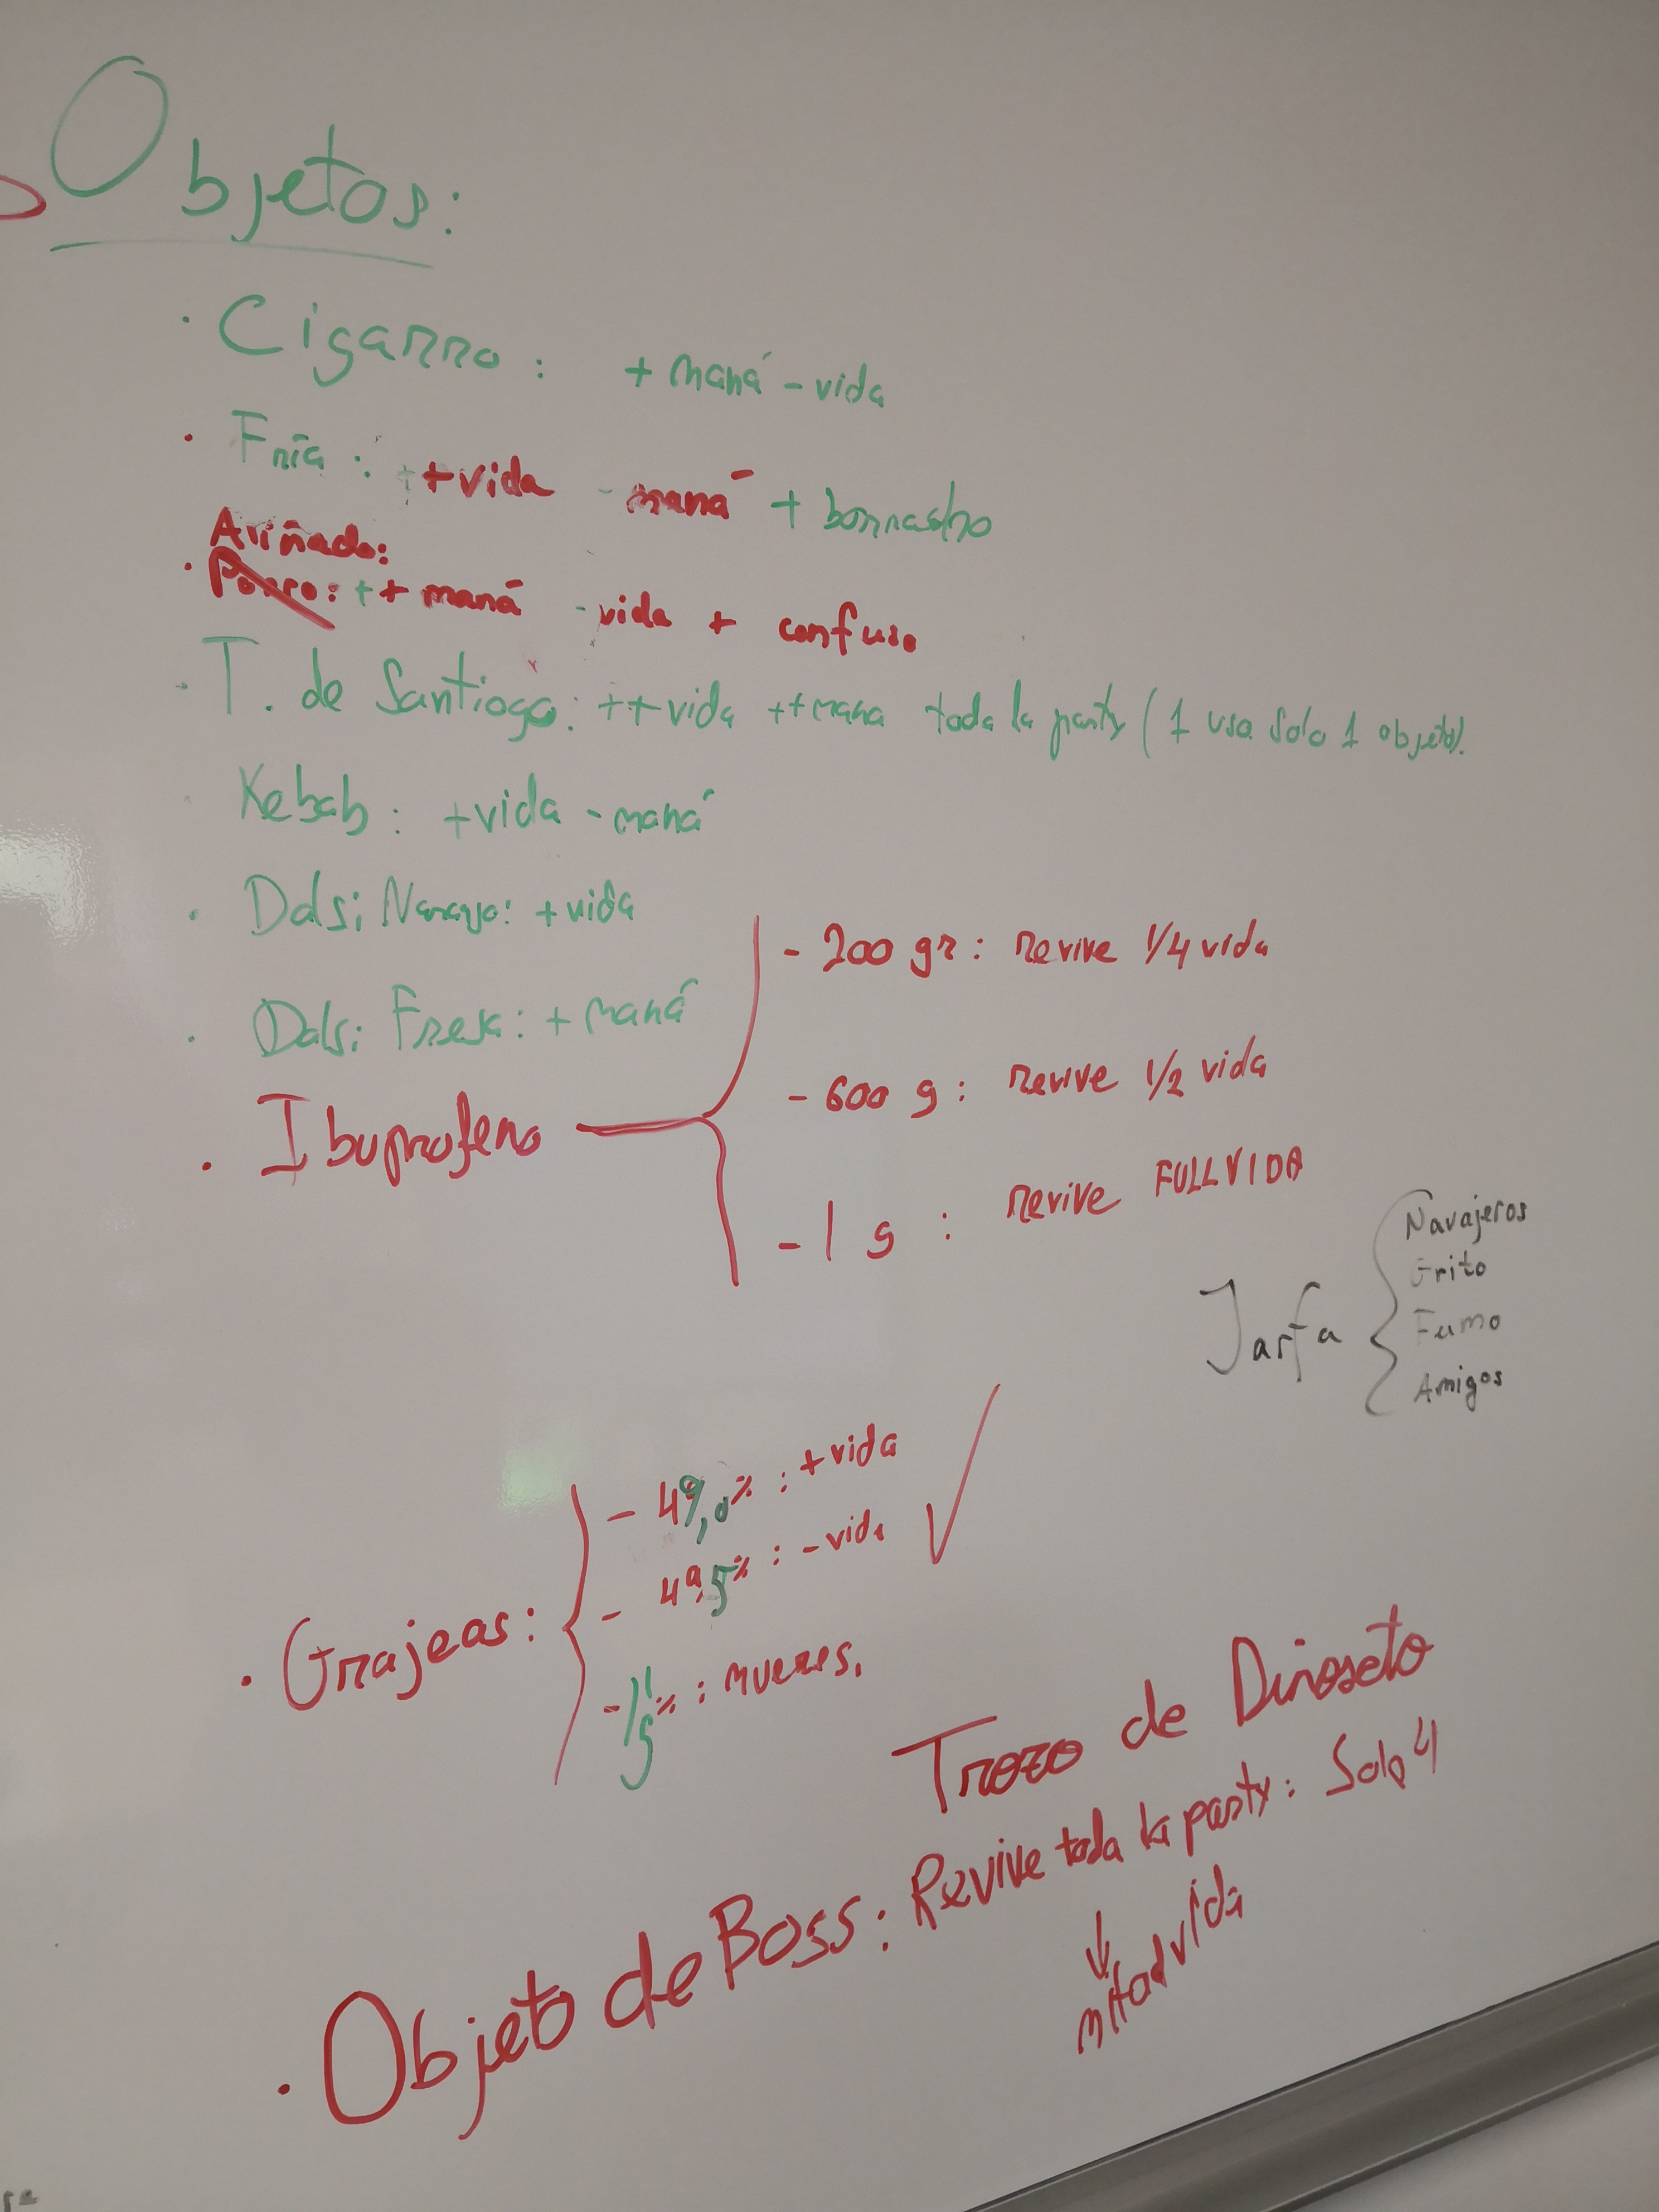 Objetos:
· Cigarro: + maná - vida
· Fría: ++vida - maná + borracho
Aviñado:
· Porro: ++ maná - vida + confuso
· T. de Santiago: ++vida ++mana toda la party (1 uso solo 1 objeto).
· Kebab: +vida - maná
· Dalsi Naranja: +vida
· Dalsi Fresa: + maná
· Ibuprofeno
- 200 gr: revive 1/4 vida
- 600 g: revive 1/2 vida
- 1 g: revive FULLVIDA
Jarfa
Navajeros
Grito
Fumo
Amigos
· Grajeas:
- 49,0%: +vida
- 49,5%: - vida
- 1'5%: mueres.
Trozo de Dinoseto
· Objeto de Boss: Revive toda la party: Solo 4
↓
mitad vida